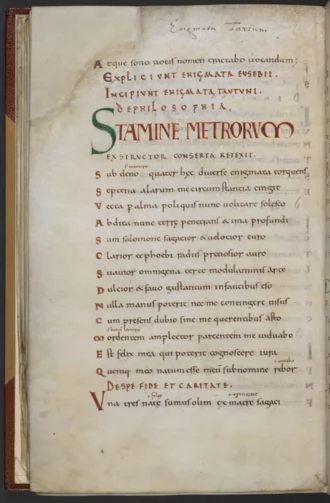 Enigmata Tautuni.
Atque sono uocis nomen exactabo uocandum;
EXPLICIUNT ENIGMATA EUSEBII.
INCIPIUNT ENIGMATA TAUTUNI.
DE PHILOSOPHIA.
STAMINE METRORUM
EXSTRUCTOR CONSERTA RETEXIT.
Sub deno quater hec diuerse enigmata torquens
Septena alarum me circumstantia cingit
Vecta palma poli quis nunc uolitare solesco
Abdita nunc terre penetrans & ima profundi
Sum salomone sagacior & uelocior euro
Clarior & phoebi radiis pretiosior auro
Suauior omnigena certe modulaminis arte
Dulcior & fauo gustantum in faucibus eso
Nulla manus poterit nec me contingere uisus
Cum presens dubio sine me querentibus asto
Mordentem amplector parcentem me uiduabo
Est felix mea qui poterit cognoscere iura
Quemq; meo natum esse meum sub nomine rebor
DE SPE FIDE ET CARITATE.
Una tres nate sumus olim ex matre sagaci